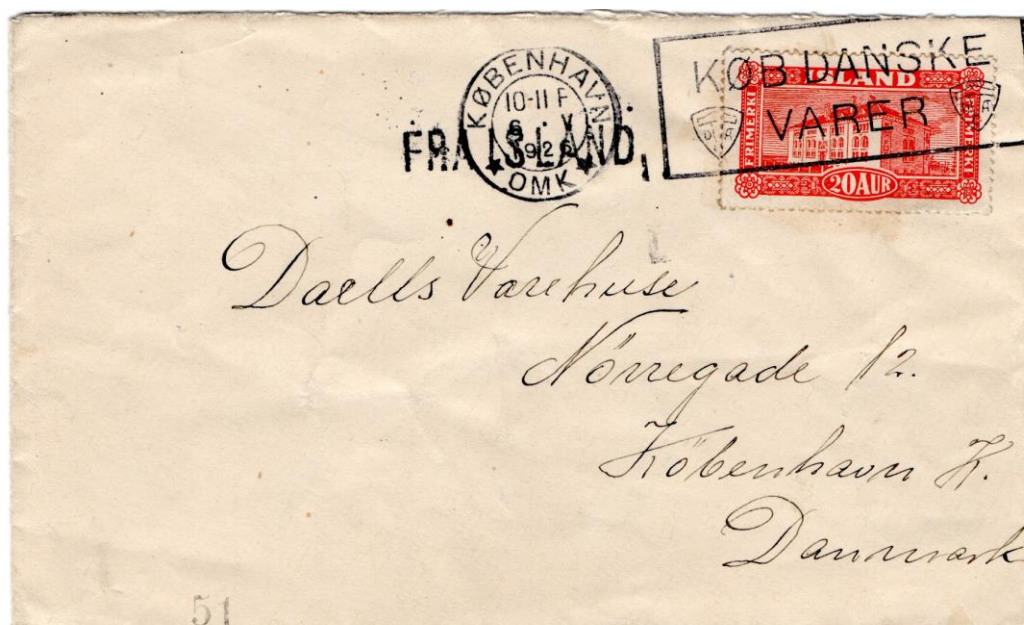 KØBENHAVN
10-11 F
6 . V
192
OMK
FRA ISLAND,
KØB DANSKE
VARER
ISLAND
FRIMERKI
FRIMERKI
20 AUR
Daells Varehuse
Nörregade 12.
Köbenhavn K.
Danmark
51